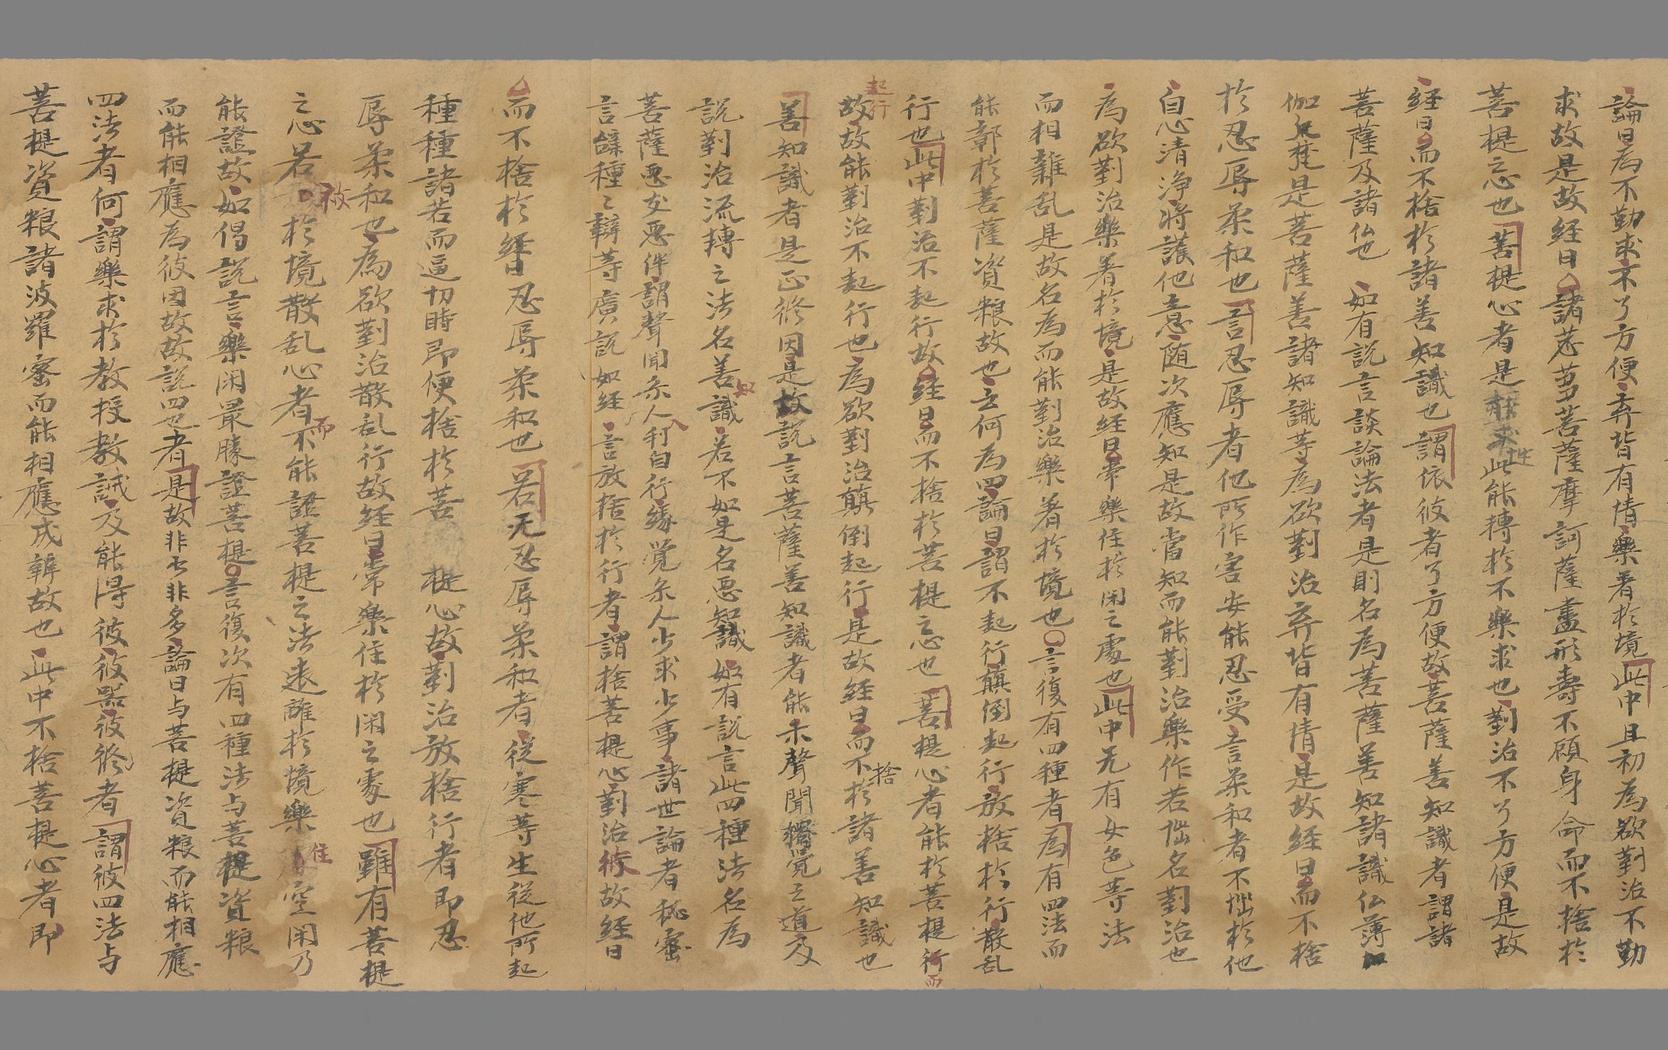 論曰為不勤求不了方便弃皆有情樂著於境此中且初為欲對治不勤
求故是故經曰諸菩薩摩訶薩盡形壽不顧身命而不捨於
菩提忘也菩提心者是 此能轉於不樂求也對治不了方便是故
經曰而不捨於諸善知識也謂依彼者了方便故菩薩善知識者謂諸
菩薩及諸仏也 如有說言談論法者是則名為菩薩善知諸識仏薄
伽梵是菩薩善諸知識等為欲對治弃皆有情是故經曰而不捨
於忍辱柔和也言忍辱者他所作害安能忍受言柔和者不惱於他
自心清淨將護他意随次應知是故當知而能對治樂作若惱名對治也
為欲對治樂著於境是故經曰常樂住於闲之處也此中无有女色等法
而相雜乱是故名為而能對治樂著於境也言復有四種者為有四法而
能鄣於菩薩資粮故也云何為四論曰謂不起行顛倒起行放捨於行散乱
行也此中對治不起行故經曰而不捨於菩提忘也菩提心者能於菩提行而
起行
故故能對治不起行也為欲對治顛倒起行是故經曰而不捨於諸善知識也
善知識者是正修因是故說言菩薩善知識者能示聲聞獨覺之道及
說對治流轉之法名善識若不如是名惡知識如有說言此四種法名為
菩薩惡友惡伴謂聲聞乘人行自行緣覺乘人少求少事諸世論者秘密
言辭種〻辯等廣說如經言放捨於行者謂捨菩提心對治彼故經曰
而不捨於經曰忍辱柔和也若无忍辱柔和者從寒等生從他所起
種種諸若而逼切時即便捨於菩 提心故對治放捨行者即忍
辱柔和也為欲對治散乱行故經曰常樂住於闲之處也雖有菩提
之心若 故於境散乱心者而不能證菩提之法遠離於境樂住空闲乃
能證故如偈說言樂闲最勝證菩提言復次有四種法与菩提資粮
而能相應為彼因故故說四也者是故非少非多論曰与菩提資粮而能相應
四法者何謂樂求於教授教誡及能得彼彼器彼修者謂彼四法与
菩提資粮諸波羅蜜而能相應成辦故也此中不捨菩提心者即